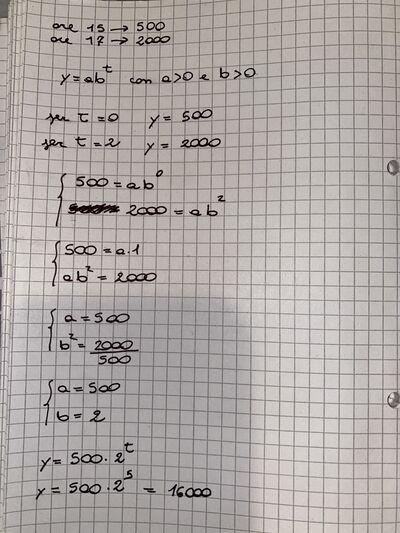 ore 15 → 500
ore 17 → 2000
y = ab^t con a>0 e b>0
per t=0 y = 500
per t=2 y = 2000
500 = ab^0
2000 = ab^2
500 = a·1
ab^2 = 2000
a = 500
b^2 = 2000/500
a = 500
b = 2
y = 500 · 2^t
y = 500 · 2^5 = 16000